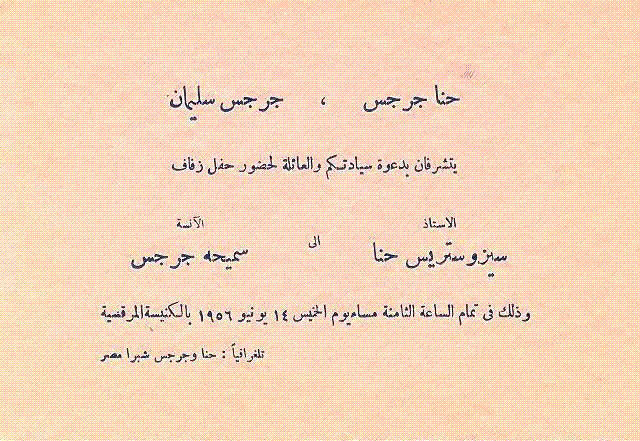 حنا جرجس ، جرجس سليمان
يتشرفان بدعوة سيادتكم والعائلة لحضور حفل زفاف
الاستاذ الآنسة
سيزوستريس حنا الى سميحه جرجس
وذلك فى تمام الساعة الثامنة مساء يوم الخميس ١٤ يونيو ١٩٥٦ بالكنيسة المرقصية
تلغرافياً : حنا وجرجس شبرا مصر